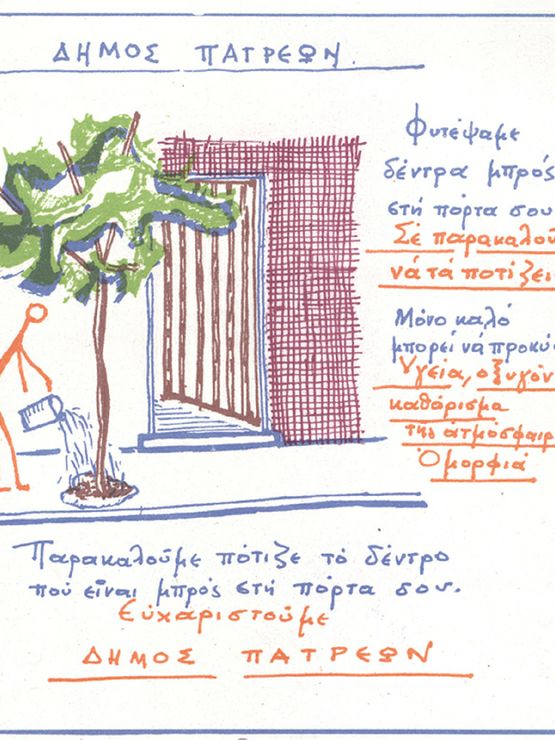 ΔΗΜΟΣ ΠΑΤΡΕΩΝ.
Φυτέψαμε
δέντρα μπρός
στή πόρτα σου
Σέ παρακαλοῦ
νά τά ποτίζει
Μόνο καλό
μπορεί νά προκύ
Υγεία, οξυγόν
καθάρισμα
της ατμόσφαιρ
Ὀμορφιά
Παρακαλοῦμε πότιζε τό δέντρο
πού εἶναι μπρός στή πόρτα σου.
Εὐχαριστοῦμε
ΔΗΜΟΣ ΠΑΤΡΕΩΝ